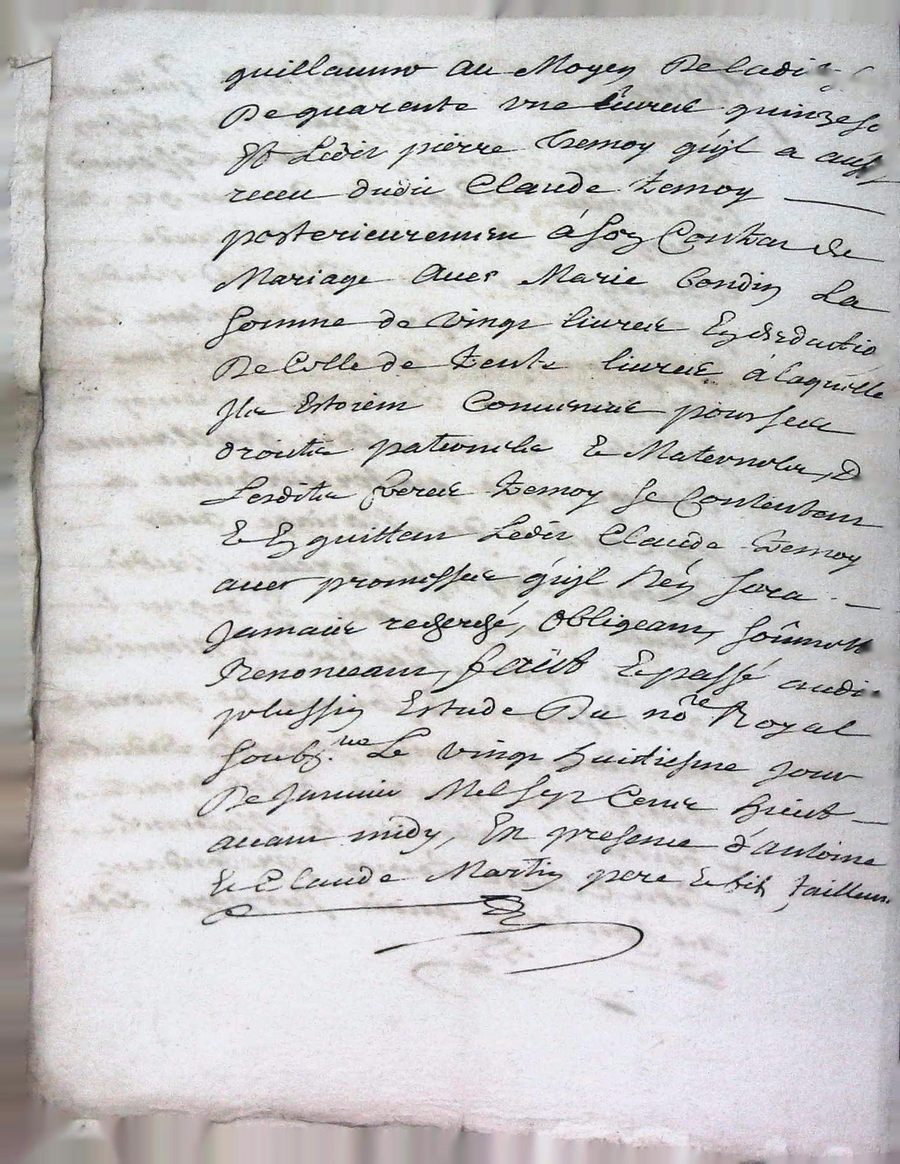 guillaume au Moyen De ladi
De quarante une livres quinze so
Et Ledit pierre Themoy qu'jl a aussy
receu dudit Claude Themoy
posterieurement à son Contrat de
Mariage avec Marie La
somme de vingt livres En deduction
De Celle de trente livres à laquelle
Jls Estoient Convenus pour ses
droits paternels & Maternels, &
Lesdits freres Themoy se Contentant
& En quittant Ledit Claude Themoy
avec promesse qu'jl N'en sera
Jamais recherché, obligeant, soûmett
Renonceant, faict & passé audit
Estude Du no.re Royal
soubz.né Le vingt huidiesme jour
De Janvier Mil sept Cents huict
avant midy, En presence d'antoine
& Claude Martin pere & fils tailleurs